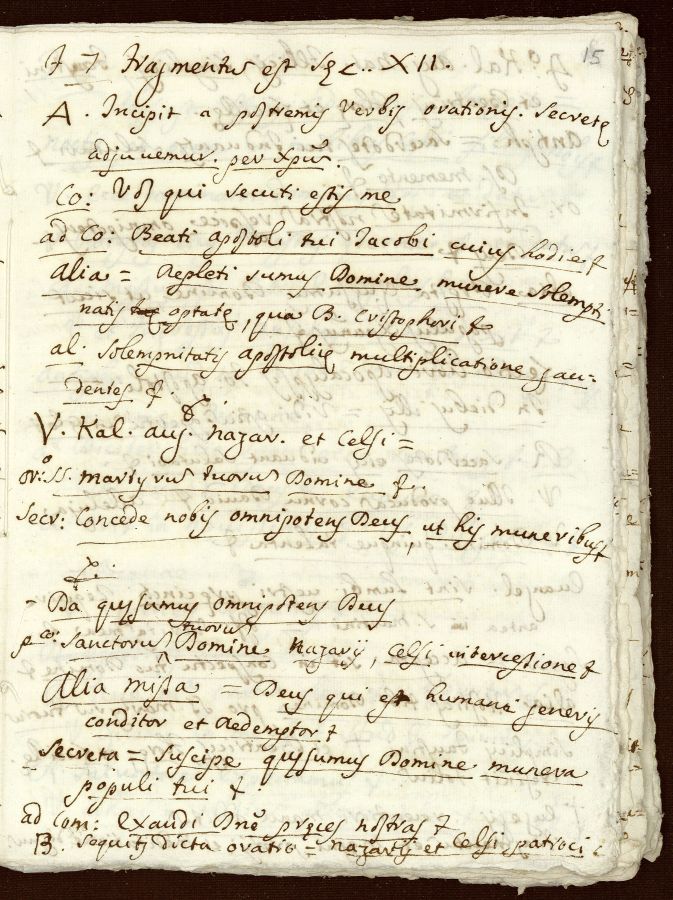 15
F 7 Fragmentus est Sęc.. XII.
A. Incipit a postremis verbis orationis. Secretę
adjuvemur. per Xpũ.
Co: Vos qui secuti estis me
ad Co: Beati apostoli tui Jacobi cuius hodie &
alia = Repleti sumus Domine munera solempni
natis optatę, qua B. Cristophori &
al. Solempnitatis apostolicę multiplicatione gau-
dentes &
V. Kal. aug. nazar. et Celsi =
or: SS. martyrus tuorus Domine &.
Secr: Concede nobis omnipotens Deus, ut his muneribus &
- Da quęsumus omnipotens Deus
p co: Sanctorus tuorus Domine Nazarij, Celsi intercessione &
Alia missa = Deus qui es humana generis
conditor et Redemptor &
Secreta = Suscipe quęsumus Domine munera
populi tui &.
ad Com: Exaudi Dne pręces nostras &
B. Sequitur dicta oratio = nazarij et Celsi patroci